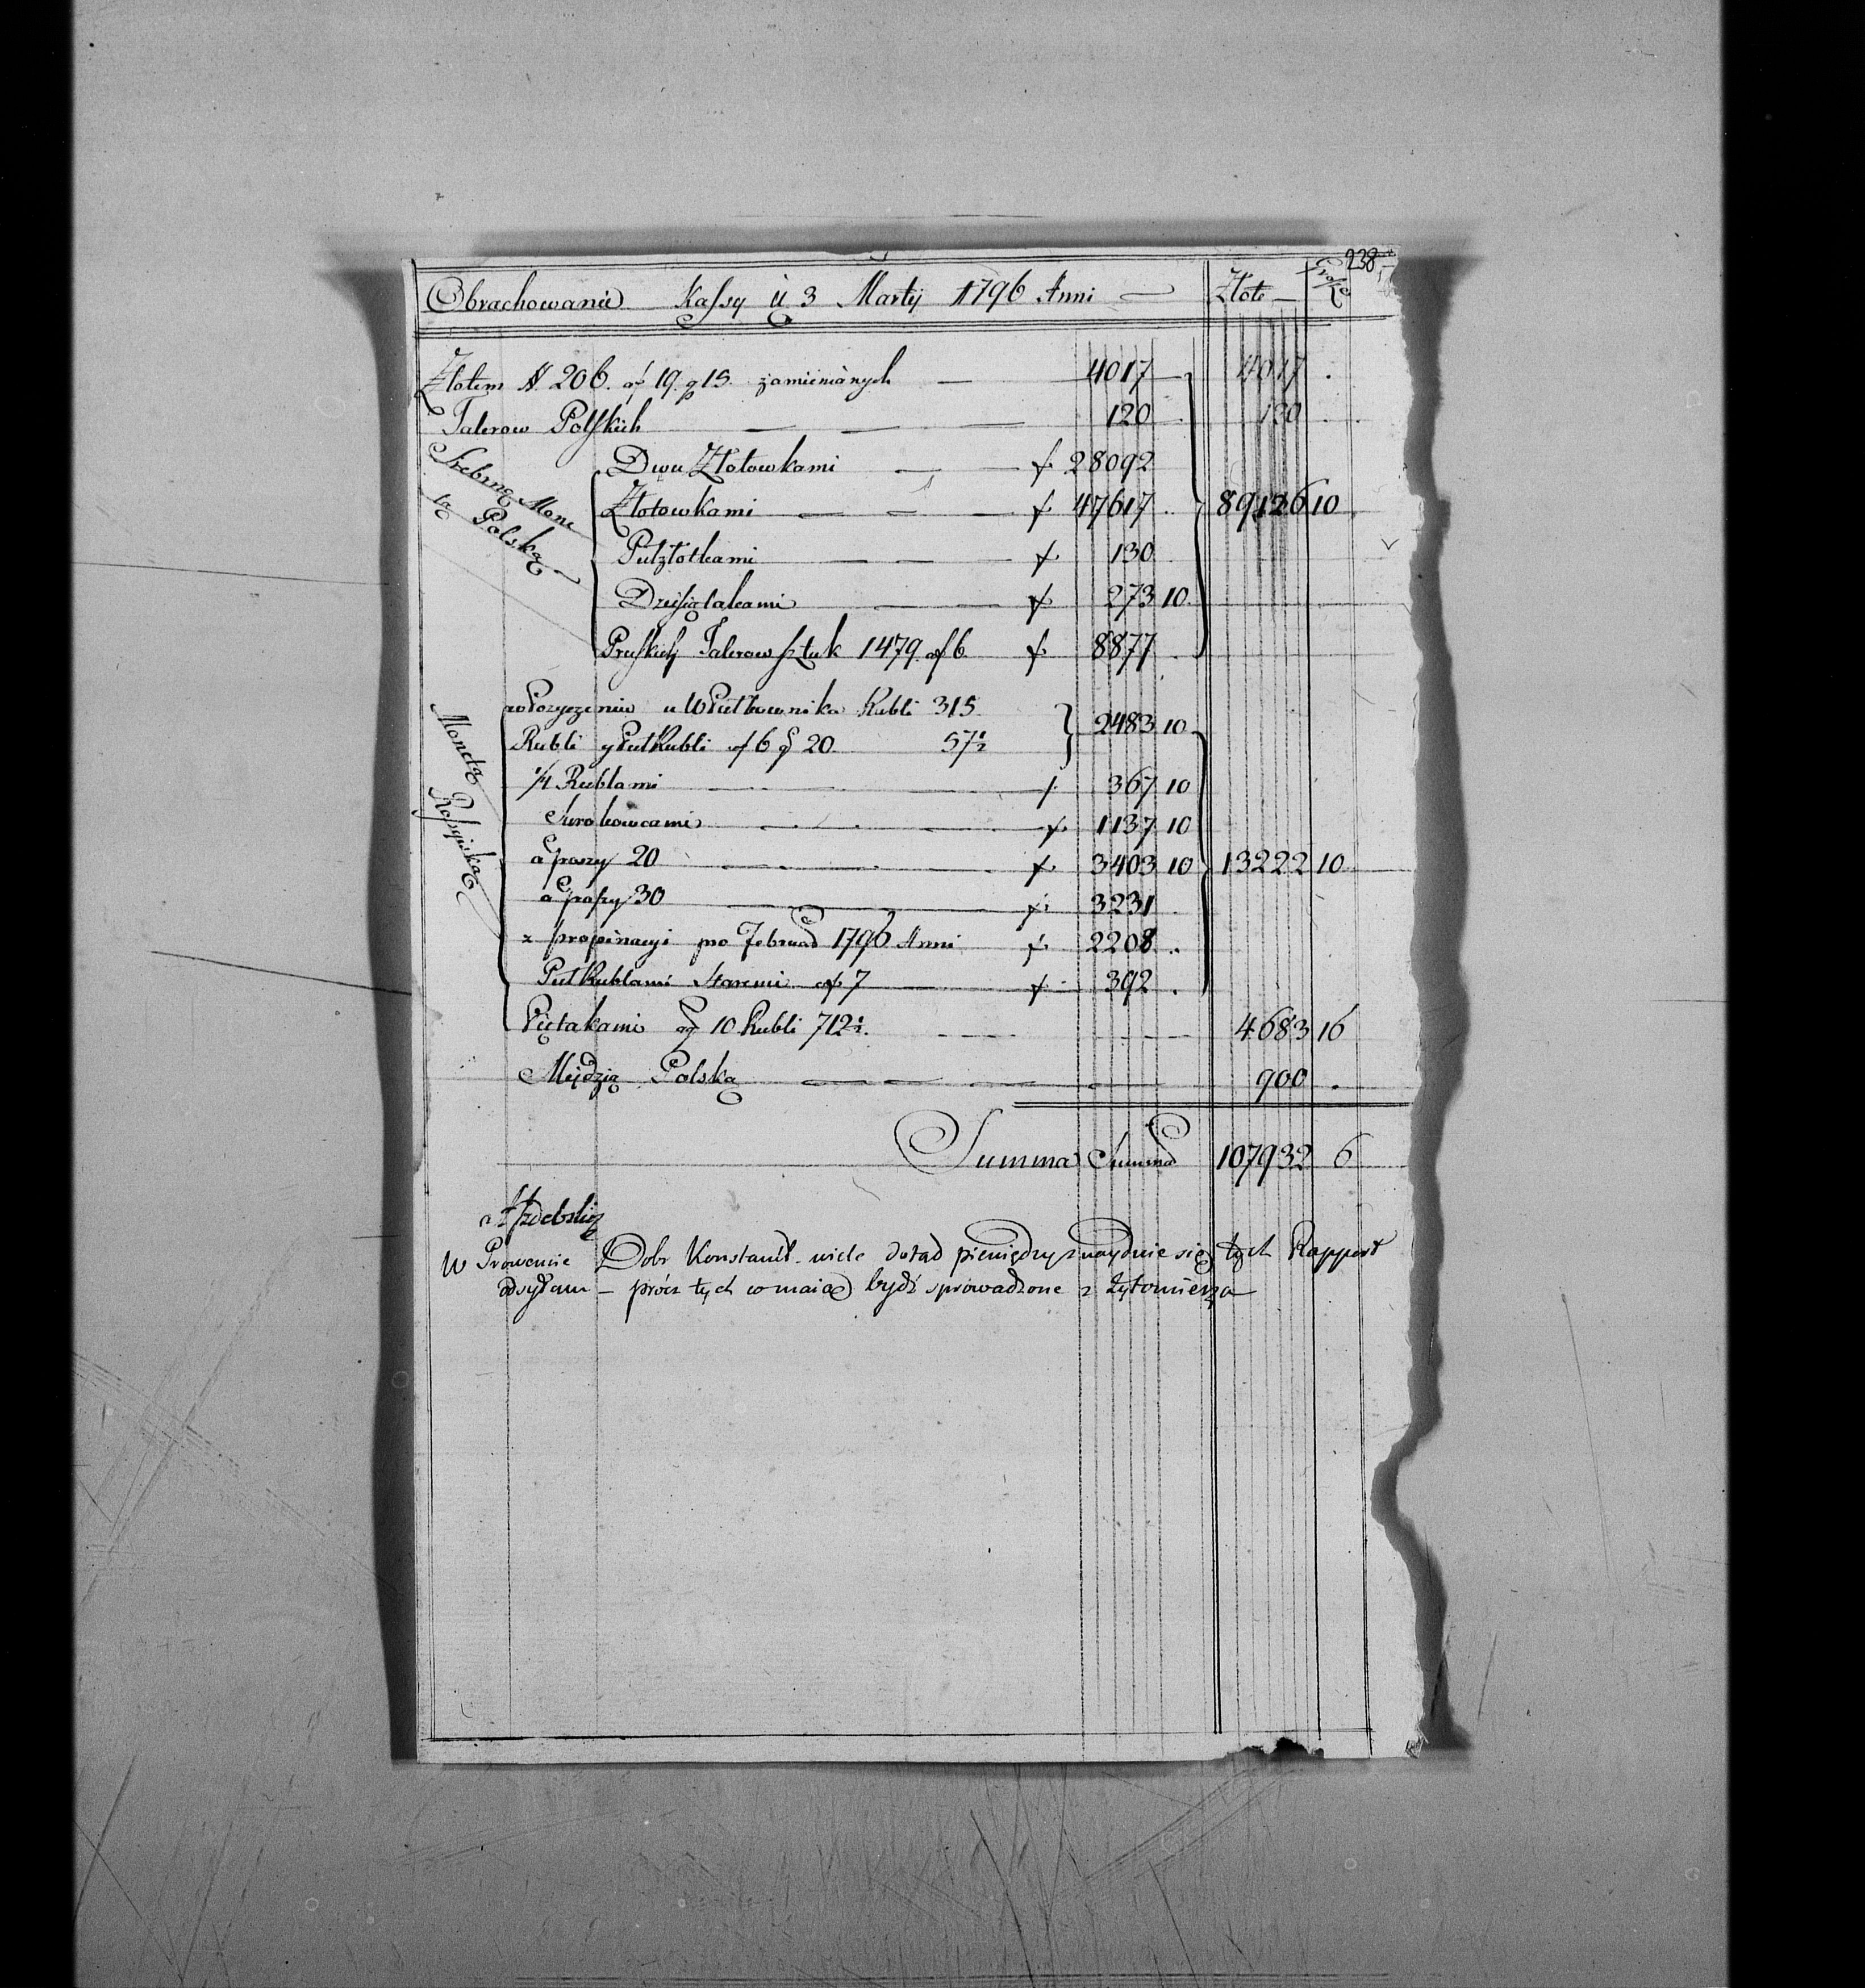 238
Obrachowanie Kassy ū 3 Martij 1796 Anni — Złote — Grosze
Złotem # 206. af 19. g 15. zamienianych — 4017 — 4017 .
Talerow Polskich — — — 120 . 130 . .
Srebrną Mone
tą Polską
Dwu Złotowkami — — f 28092
Złotowkami — — — f 47617 . 89126 10
Pułzłotkami — — f 130
Dziesiątakami — — f 273 10
Pruskich Talerow sztuk 1479 af 6 f 8877 .
Monetą Rossyiską
w Pozyczeniu u WPułkownika Rubli 315
Rubli y PułRubli af 6 g 20 57½ 2483 10
¼ Rublami — — — f 367 10
Surokowcami — . — . — f 1137 10
a groszy 20 — . — . — f 3403 10 13222 10
a groszy 30 — f 3231 .
z propinacyi pro Februar 1796 Anni f 2208 .
PułRublami Staremi af 7 — f 392 .
Piętakami ag 10 Rubli 712½. — — — 4683 16
Miedzią Polską — — — — 900 .
Summa Summa 107932 6
W Prowencie Dobr Konstant. wiele dotąd pieniędzy znayduie się, tych Rapport
odsyłam — prócz tych co maią bydź sprowadzone z Żytomierza —